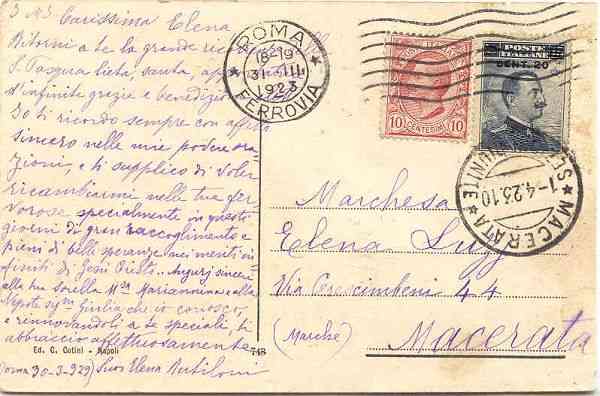 Carissima Elena
Ritorni a te la grande
S. Pasqua lieta, santa,
d'infinite grazie e benedizio
Io ti ricordo sempre con affetto
sincero nelle mie povere ora
zioni, e ti supplico di voler
ricambiarmi nelle tue fer
vorose specialmente in questi
giorni di gran raccoglimento e
pieni di belle speranze nei meriti in
finiti di Gesù Cristo. Augurj sinceri
alla tua sorella Mª Marianna e alla
Nipote sigª Giulia che io conosco,
e rinnovandoli a te speciali, ti
abbraccio affettuosamente
Ed. C. Cotini - Napoli
748
(Roma 30-3-923) Suor Elena
ROMA
18-19
31 III
1923
FERROVIA
10 CENTESIMI 10
POSTE
ITALIANE
CENT. 20
MACERATA
1-4.23.10
Marchesa
Elena
Via Crescimbeni 44
(Marche)
Macerata